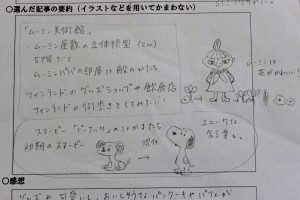 ○選んだ記事の要約（イラストなどを用いてかまわない）
「ムーミン美術館」
・ムーミン屋敷の立体模型（2m）
5階だて
ムーミンパパの部屋は船のかたち
フィンランドのグッズショップや飲食店
フィンランドの街歩きをしてみたい！
ムーミンは
花がかわいい
スヌーピー「ピーナッツ」のなかまたち
初期のスヌーピー
現在
ユニークな
名言集。
○感想
グッズや可愛いし、おいしそうなパンケーキやパフェが